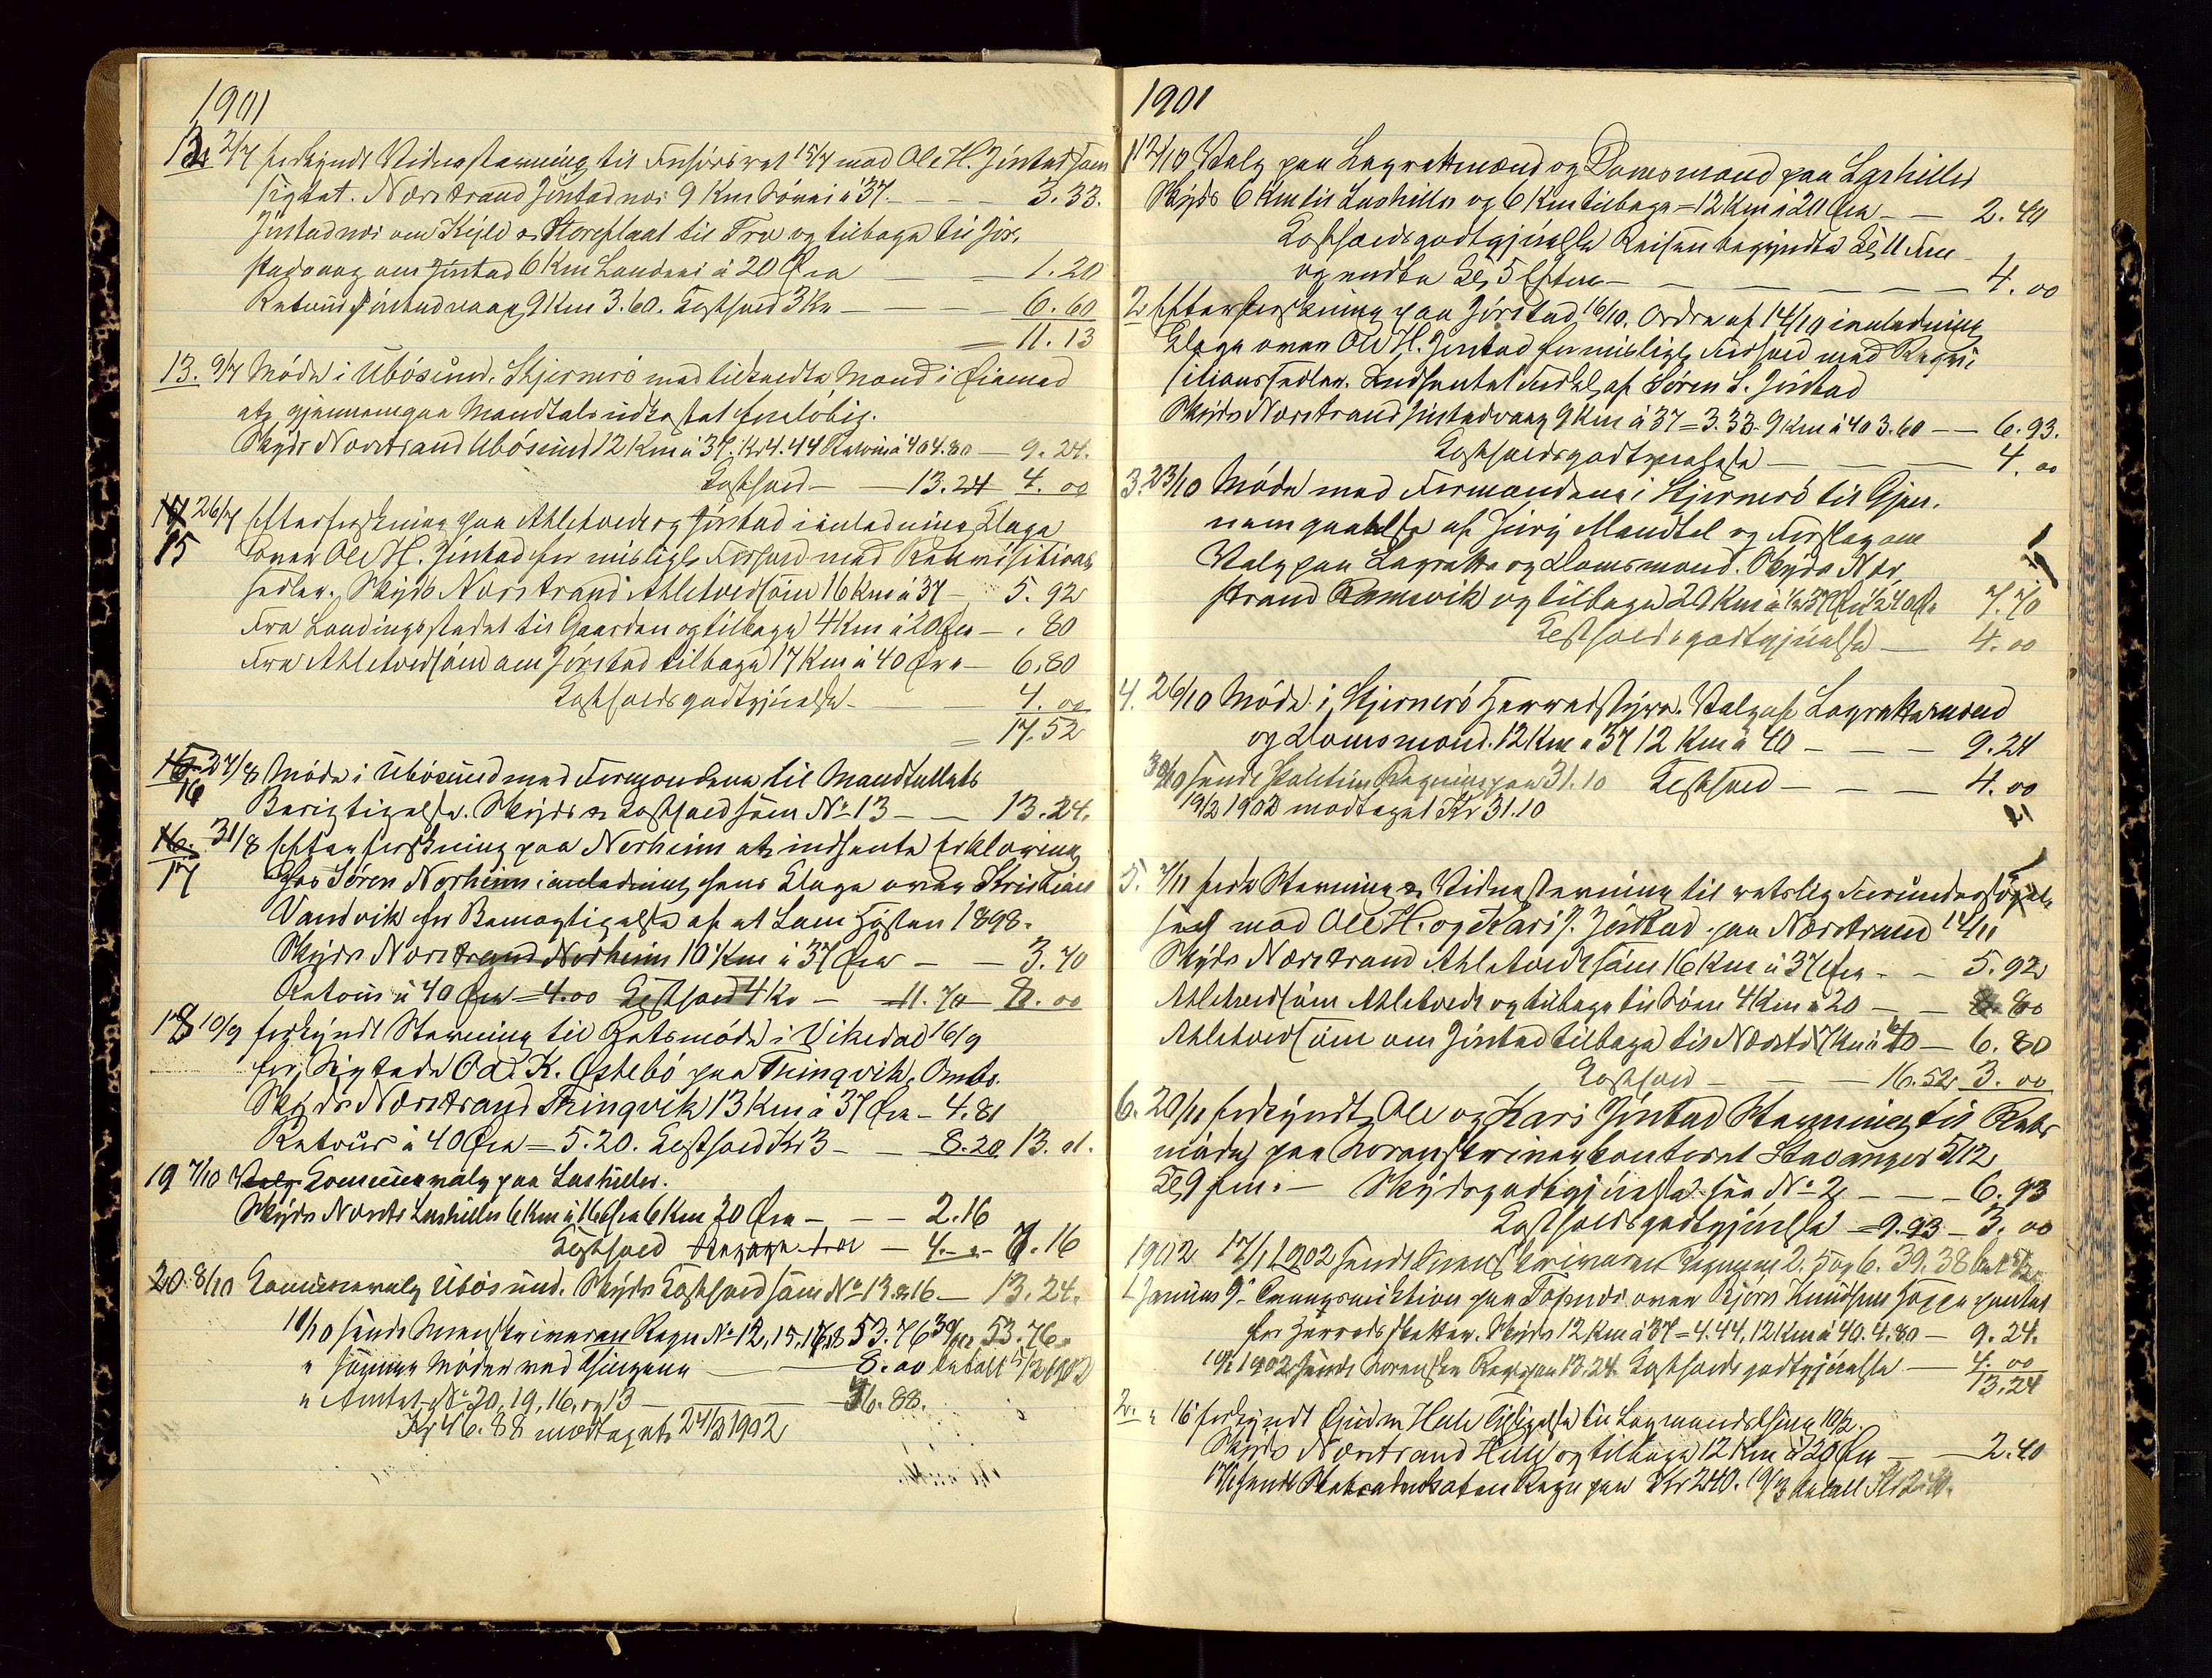 1901
12 2/7 forkyndt Vidnestævning til Forhørsret 15/7 mod Ole H. Jørstad som
sigtet. Nærstrand Jørstadvaag 9 Km Søvei à 37. — 3.33.
Jørstadvaag om til Fra og tilbage til Jør-
stadvaag om Jørstad 6 Km Landvei à 20 Øre — 1.20
Retour Jørstadvaag 9 Km 3.60. Kosthold 3 Kr — 6.60
= 11.13
13. 9/7 Møde i Ubøsund, Skjernerø med tilkaldte Mænd i Øiemed
at gjennemgaa Mandtalsudkastet foreløbig.
Skyds Nærstrand Ubøsund 12 Km à 37. Kr 4.44 Retour à 40 4.80 — 9.24.
Kosthold — 13.24 4.00
15 26/7 Efterforskning paa Ahletveit og Jørstad i anledning Klage
over Ole H. Jørstad for misligt Forhold med Rekvisitions
sedler. Skyds Nærstrand Ahletveitsøen 16 Km à 37 — 5.92
Fra Landingsstedet til Gaarden og tilbage 4 Km à 20 Øre — 80
Fra Ahletveitsøen om Jørstad tilbage 17 Km à 40 Øre — 6.80
Kostholdsgodtgjørelse — 4.00
= 17.52
16 27/8 Møde i Ubøsund med Formændene til Mandtallets
Berigtigelse. Skyds & Kosthold som No 13 — 13.24.
16. 31/8 Efterforskning paa Norheim at indhente Erklæring
17 hos Søren Norheim i anledning hans Klage over Kristian
Vandvik for Bemægtigelse af et Lam Høsten 1898.
Skyds Nærstrand Norheim 10 Km à 37 Øre — 3.70
Retour à 40 Øre = 4.00 Kosthold 4 Kr — 11.70 8.00
18 10/9 forkyndt Stævning til Retsmøde i Vikedal 16/9
for Sigtede Od. K. Østebø paa Tungvik,
Skyds Nærstrand Tungvik 13 Km à 37 Øre — 4.81
Retour à 40 Øre = 5.20. Kosthold Kr 3 — 8.20 13.01.
19 7/10 Valg Kommunevalg paa Lashiller.
Skyds Nærstr Lashiller 6 Km à 16 Øre 6 Km 20 Øre — 2.16
Kosthold — 4.– 6.16
20 8/10 Kommunevalg Ubøsund. Skyds Kosthold som No 13 & 16 — 13.24.
10/10 sendt Sorenskriveren Regn No 12, 15, 17, 18 53.76 53.76
" samme Møder ved Thingene — 8.00 betalt 5/2 1902
" Amtet No 20, 19, 16, og 13 — 46.88.
Kr 46.88 modtaget 24/2 1902
1901
1 12/10 Valg paa Lagrettmænd og Domsmænd paa Lashiller
Skyds 6 Km til Lashiller og 6 Km tilbage = 12 Km à 20 Øre — 2.40
Kostholdsgodtgjørelse Reisen begyndte Kl, 11 Form
og endte Kl, 5 Efterm — 4.00
2 Efterforskning paa Jørstad 16/10. Ordre af 14/10 i anledning
Klage over Ole H. Jørstad for misligt Forhold med Rekvi-
sitionssedler. Indhentet af Søren S. Jørstad
Skyds Nærstrand Jørstadvaag 9 Km à 37 = 3.33. 9 Km à 40 3.60 — 6.93.
Kostholdsgodtgjørelse — 4.00
3. 23/10 Møde med Formændene i Skjernerø til Gjen-
nemgaaelse af Jury Mandtal og Forslag om
Valg paa Lagrette og Domsmænd. Skyds Nær
strand Ramsvik og tilbage 20 Km à ½ 37 Øre ½ 40 Ø. 7.70
Kostholdsgodtgjørelse — 4.00
4. 26/10 Møde i Skjernerø Herredstyre. Valg af Lagrettemænd
og Domsmænd. 12 Km à 37 12 Km à 40 — 9.24
30/10 sendt Politim Regning paa 31.10 Kosthold — 4.00
19/2 1902 modtaget Kr 31.10
5. 7/11 fork Stævning & Vidnestævning til retslig Forundersøgelse
sag mod Ole H. og Kari J. Jørstad paa Nærstrand 14/11
Skyds Nærstrand Ahletveitsøen 16 Km à 37 Øre — 5.92
Ahletveitsøen Ahletveit og tilbage til Søen 4 Km à 20 — 80
Ahletveitsøen om Jørstad tilbage til Nærstr 17 Km à 40 — 6.80
Kosthold — 16.52 3.00
6. 20/11 forkyndt Ole og Kari Jørstad Stævning til Rets
møde paa Sorenskriverkontoret Stavanger 5/12
Kl 9 fm. — Skydsgodtgjørelse som No 2 — 6.93
Kostholdsgodtgjørelse = 9.93 — 3.00
1902 17/1 1902 sendt Sorenskriveren Regning 2. 5 og 6. 39.38
1 Januar 9. Tvangsauktion paa over Bjørn Knudsen pantet
for Herredsskatter. Skyds 12 Km à 37 = 4.44, 12 Km à 40. 4.80 — 9.24.
1902 sendt Sorenskr Regn paa 13.24. Kostholdsgodtgjørelse — 4.00
13.24
2. " 16 forkyndt Gudm Hule Tilsigelse til Lagmandsthing 10/2.
Skyds Nærstrand Hule og tilbage 12 Km à 20 Øre — 2.40
17/1 sendt Statsadvokaten Regn paa Kr 2.40. 19/3 betalt Kr 2.40.